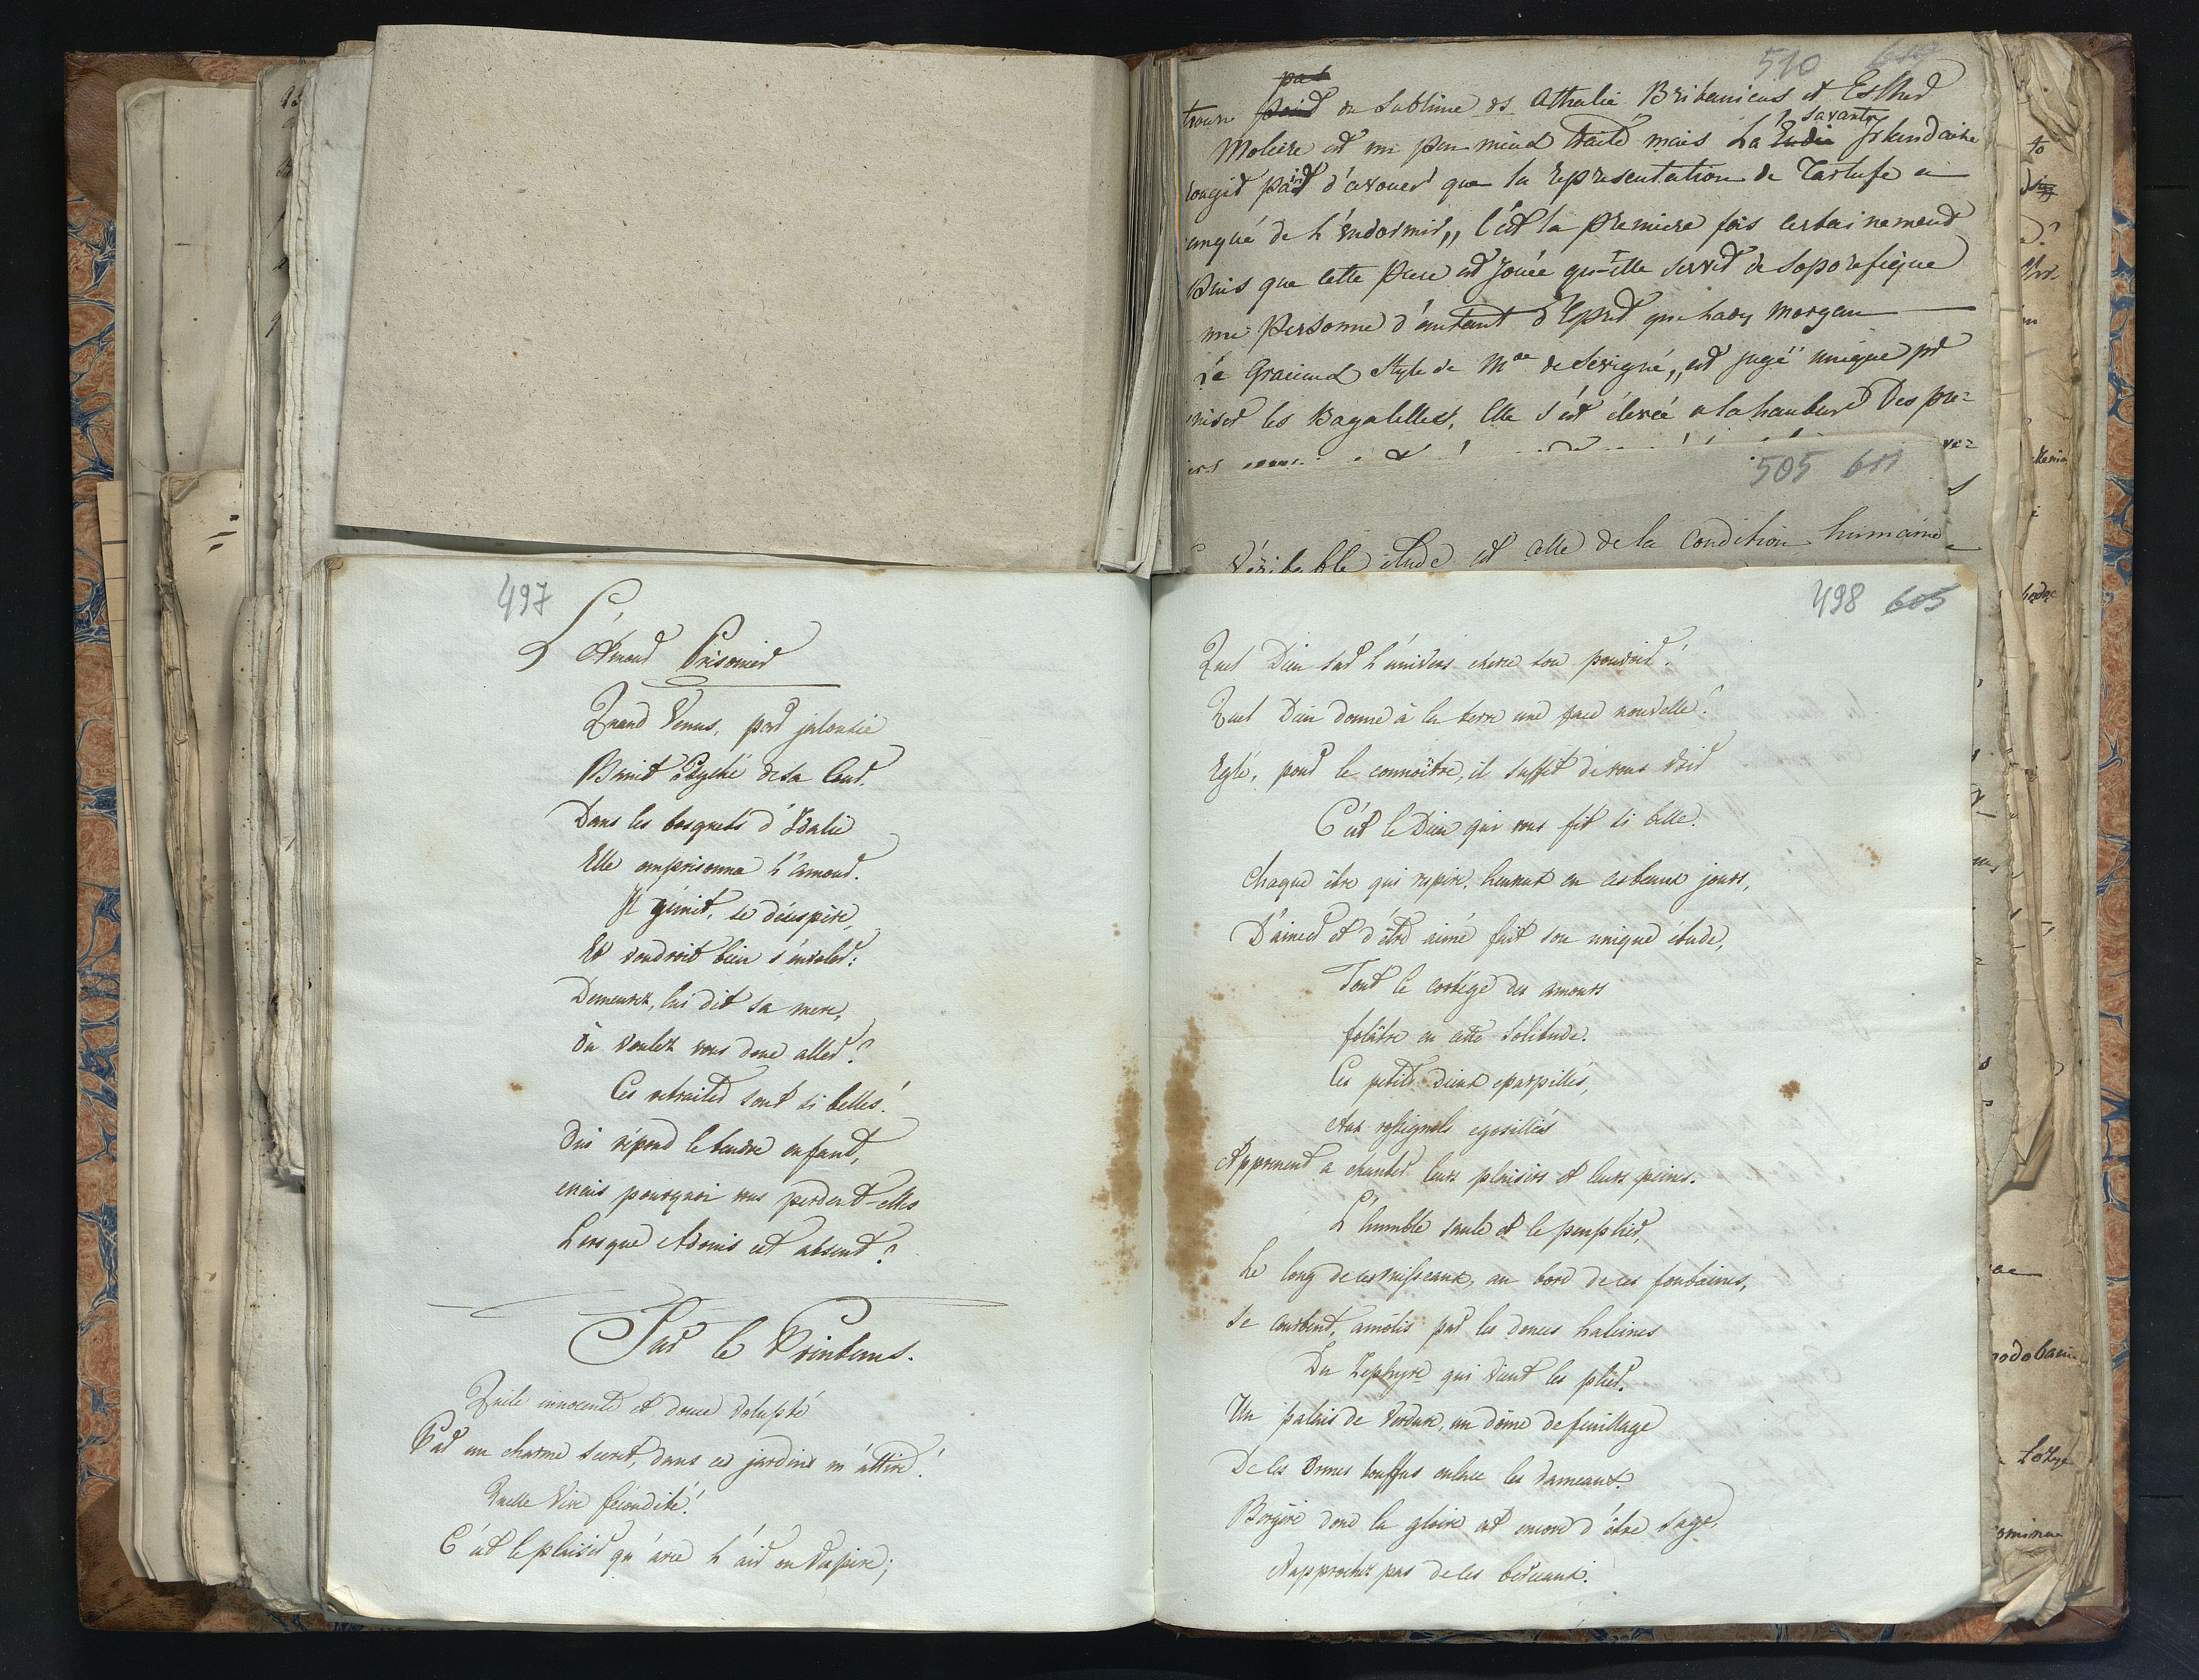 510 609
pas
trouve point de Sublime ds Athalie Britanicus et Esther
savante
Moliere est un peu mieux traité mais La Irlandaise
rougit point d'avouer que la representation de Tartufe a
anqué de L'endormir,, c'est la premiere fois certainement
puis que cette piece est jouée qu'elle servit de soporefique
une personne d'autant d'Esprit que Lady Morgan
Le Gracieux style de Mde de Sévigné,, est jugé unique pr
niser les Bagatelles, Elle s'est élevée a la hauteur Des pre=
505 611
Véritable étude est celle de la Condition humaine
497
L'Amour Prisonier
Quand Venus, par jalousie
Banit Psyché de sa Cour.
Dans les bosquets d'Idalie
Elle emprisonna L'amour.
Il gémit, se désespère,
Et voudroit bien s'envoler:
Demeurez, lui dit sa mere,
Où voulez vous donc aller?
Ces retraites sont si belles!
Oui répond le tendre enfant,
Mais pourquoi vous perdent-elles
Lorsque Adonis est absent?
Sur le Printems.
Quelle innocente et douce volupté
Par un charme secret, dans ces jardins m'attire!
Quelle Vive fécondité!
C'est le plaisir qu'avec L'air on respire;
498 605
Quel Dieu sur L'univers exerce son pouvoir!
Quel Dieu donne à la terre une face nouvelle!
Eglé, pour le connoître, il suffit de vous voir
C'est le Dieu qui vous fit si belle.
Chaque être qui respire, heureux en ces beaux jours,
D'aimer et d'être aimé fait son unique étude,
Tout le cortége des amours
folâtre en cette solitude.
Ces petits Dieux eparpillés,
Aux rossignols egosillés
Apprennent a chanter leurs plaisirs et leurs peines.
L'humble saule et le peuplier,
Le long de ces ruisseaux, au bord de ces fontaines,
Se courbent, amolis par les douces haleines
Du Zephyre qui vient les plier.
Un palais de verdure, un dôme de feuillage
De ces Ormes touffus enlace les rameaux.
Bergère dont la gloire est encore d'être sage,
N'approchez pas de ces berceaux.